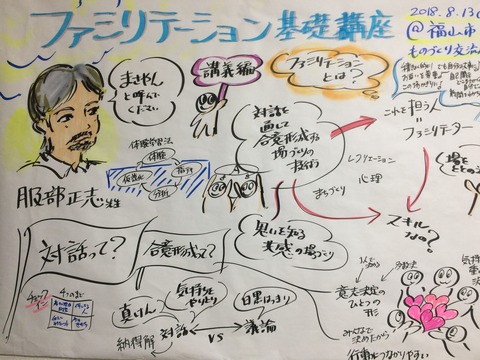 ファミリテーション基礎講座
2018.8.13(
@福山市
ものづくり交流
まさやん
と呼んで
ください
講義編
ファミリテーション
とは?
対話を
通して
合意形成する
場づくりの
技術
これを担う人
=
ファミリテーター
体験学習法
体験
指摘
分析
仮説化
レクリエーション
心理
まちづくり
場を
服部正志先生
スキル
なの?
対話って?
合意形成って?
思いを知る
共感の場づくり
チェック
イン
4つの窓
真けん
気持ちを
やりとり
白黒はっきり
納得解
対話 VS 議論
意思決定の
ひとつの
形
みんなで
決めたから
行動につながりやすい
気持ち